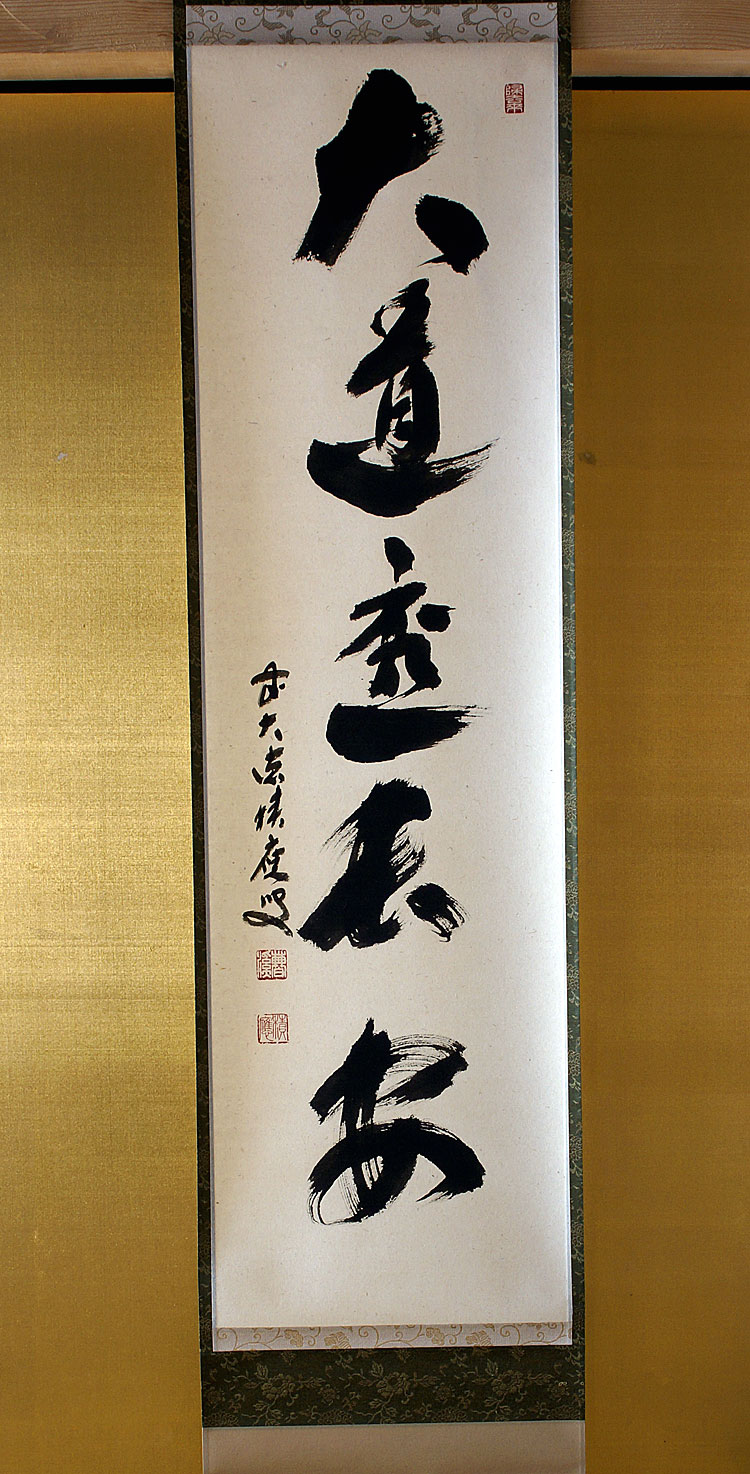 大道透長安
前大徳積應叟